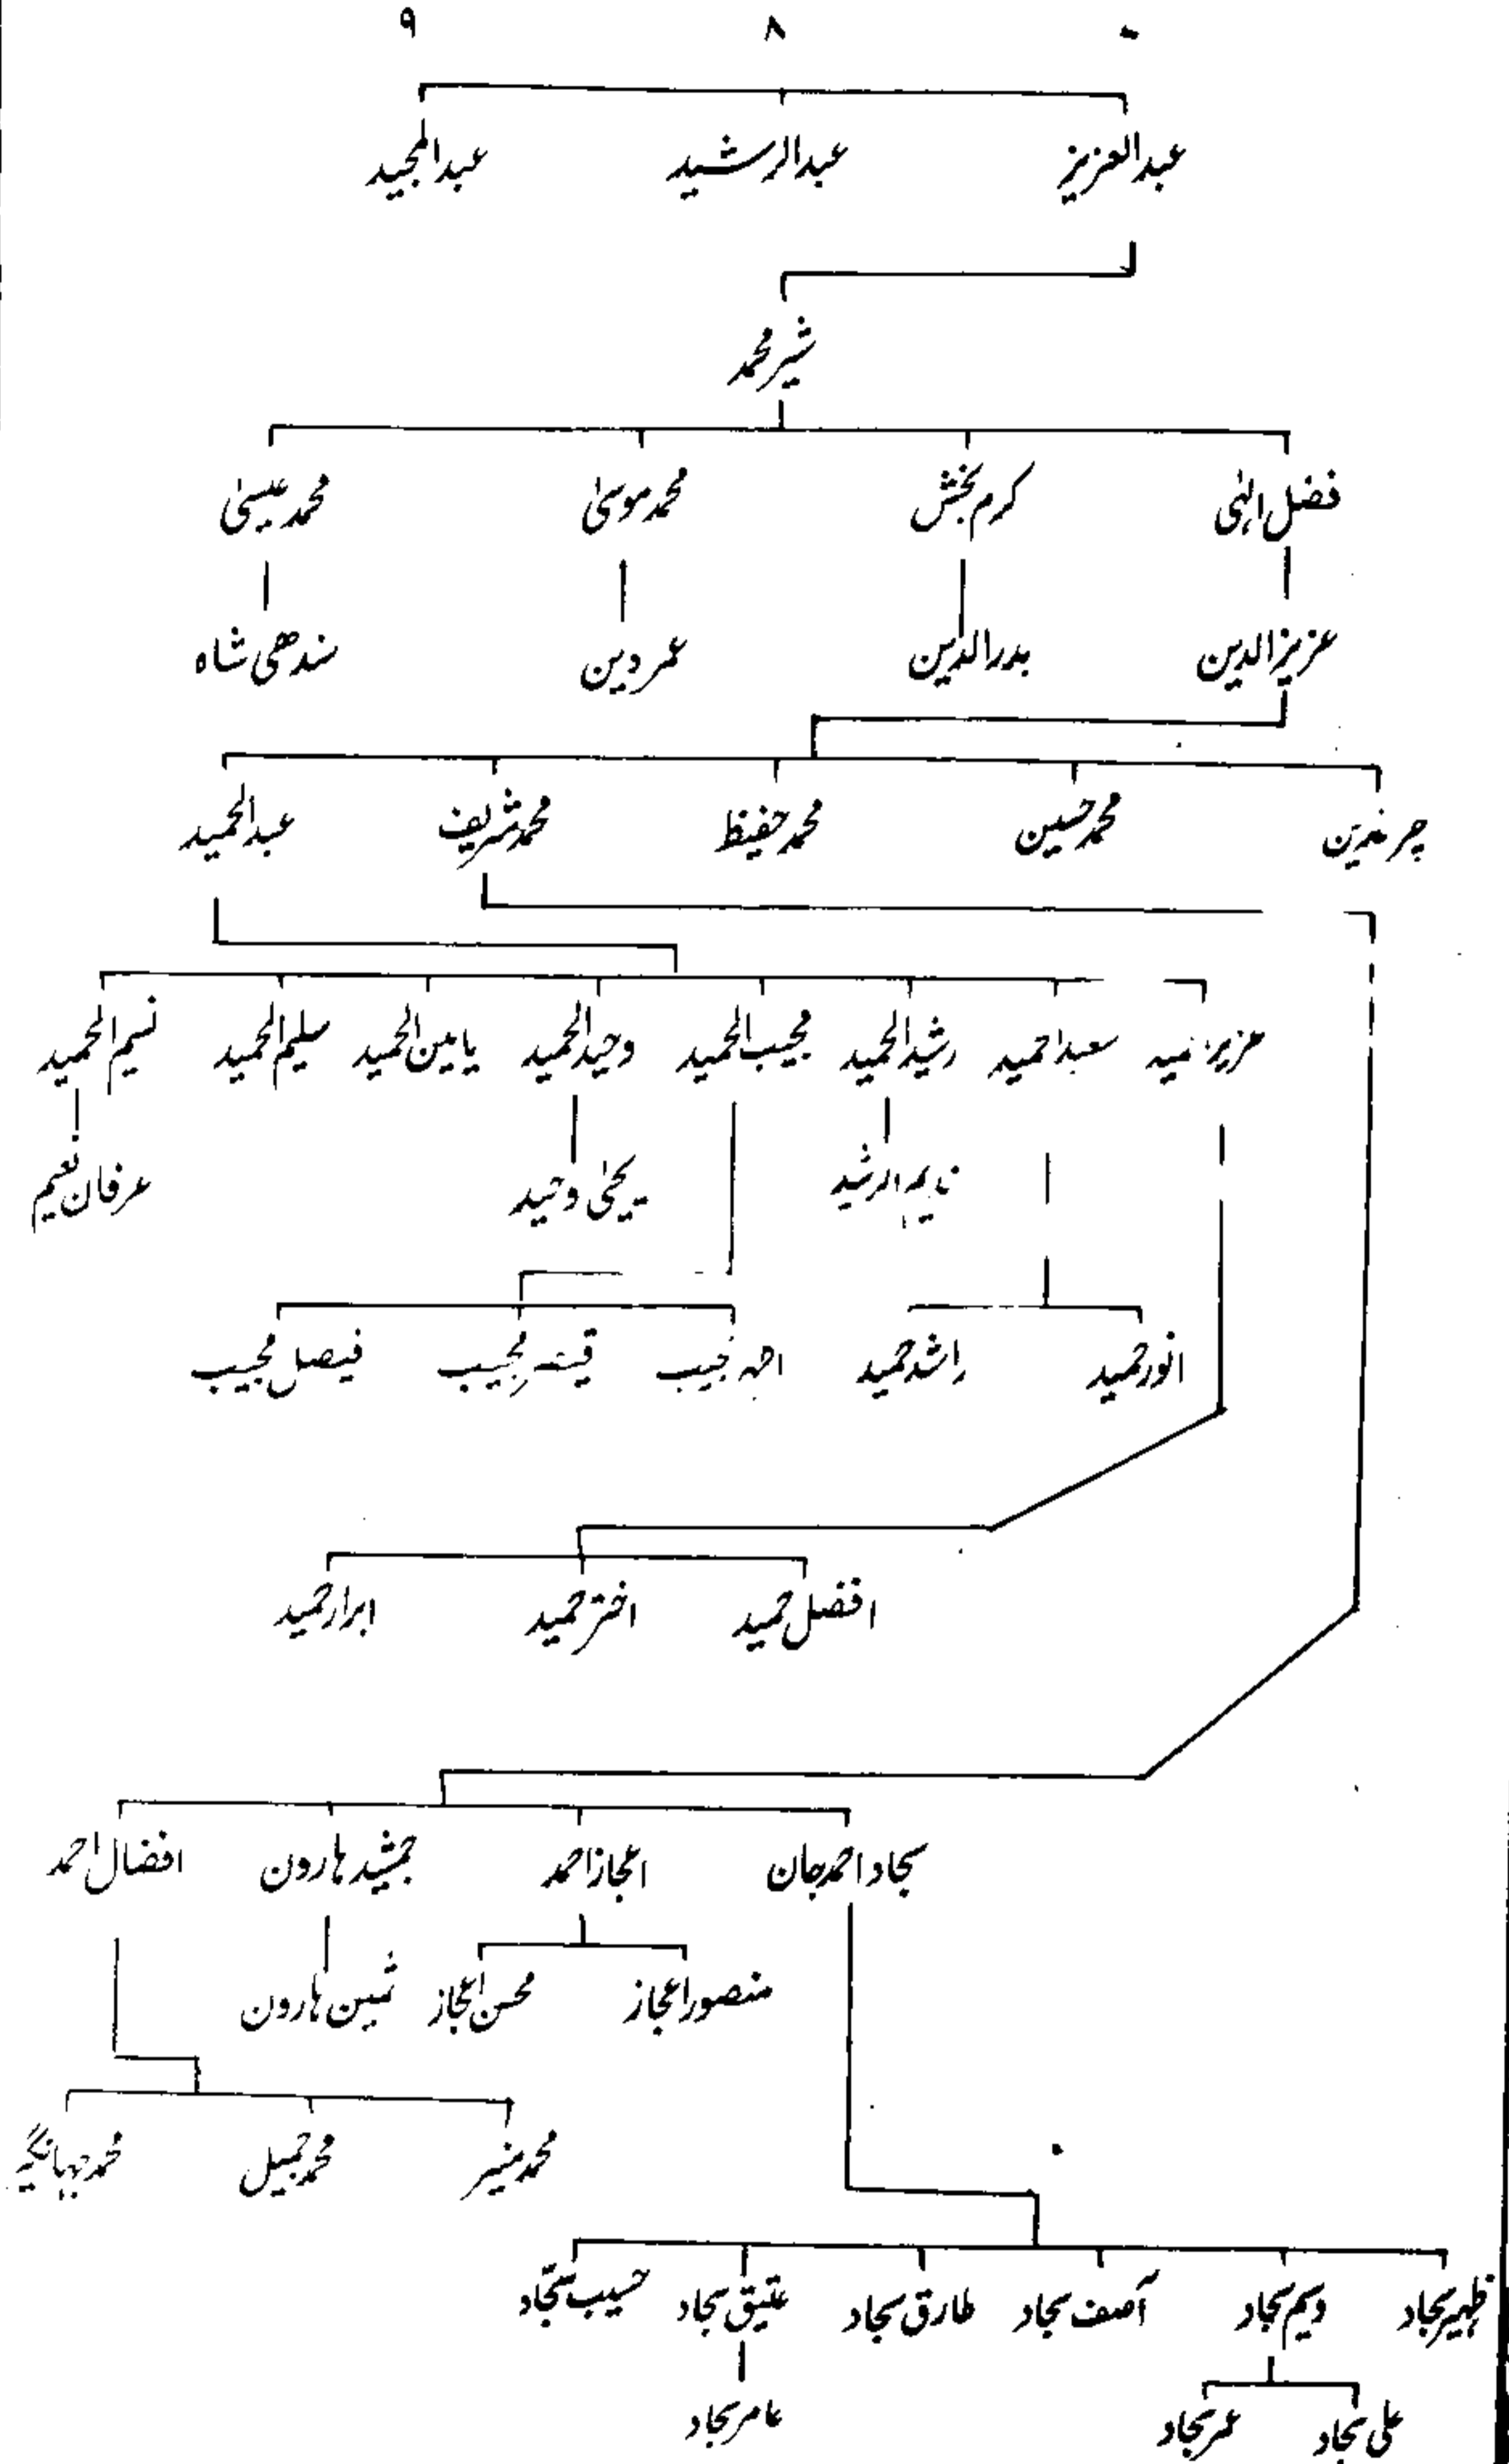 ۸ ۹
عبدالعزیز عبدالرشید عبدالمجید
شیر محمد
فضل الہٰی کرم بخش محمد موسیٰ محمد عیسیٰ
عزیزالدین بدرالدین عمر دین سندھی شاہ
محمد حسین محمد حفیظ محمد شریف عبدالحمید
رشیدالحمید مجیب الحمید وحیدالحمید یامین الحمید سلیم الحمید نسیم الحمید
یحیٰی وحید عرفان نعیم
انور حمید راشد حمید فیصل مجیب
افضل حمید اختر حمید ابرار حمید
سجاد احمد جان اعجاز احمد جمشید ہارون افضال احمد
منصور اعجاز محسن اعجاز ثمین ہارون
محمد منیر محمد جمیل
ظہیر سجاد وسیم سجاد آصف سجاد طارق سجاد عتیق سجاد حسیب سجاد
علی سجاد عمر سجاد عامر سجاد